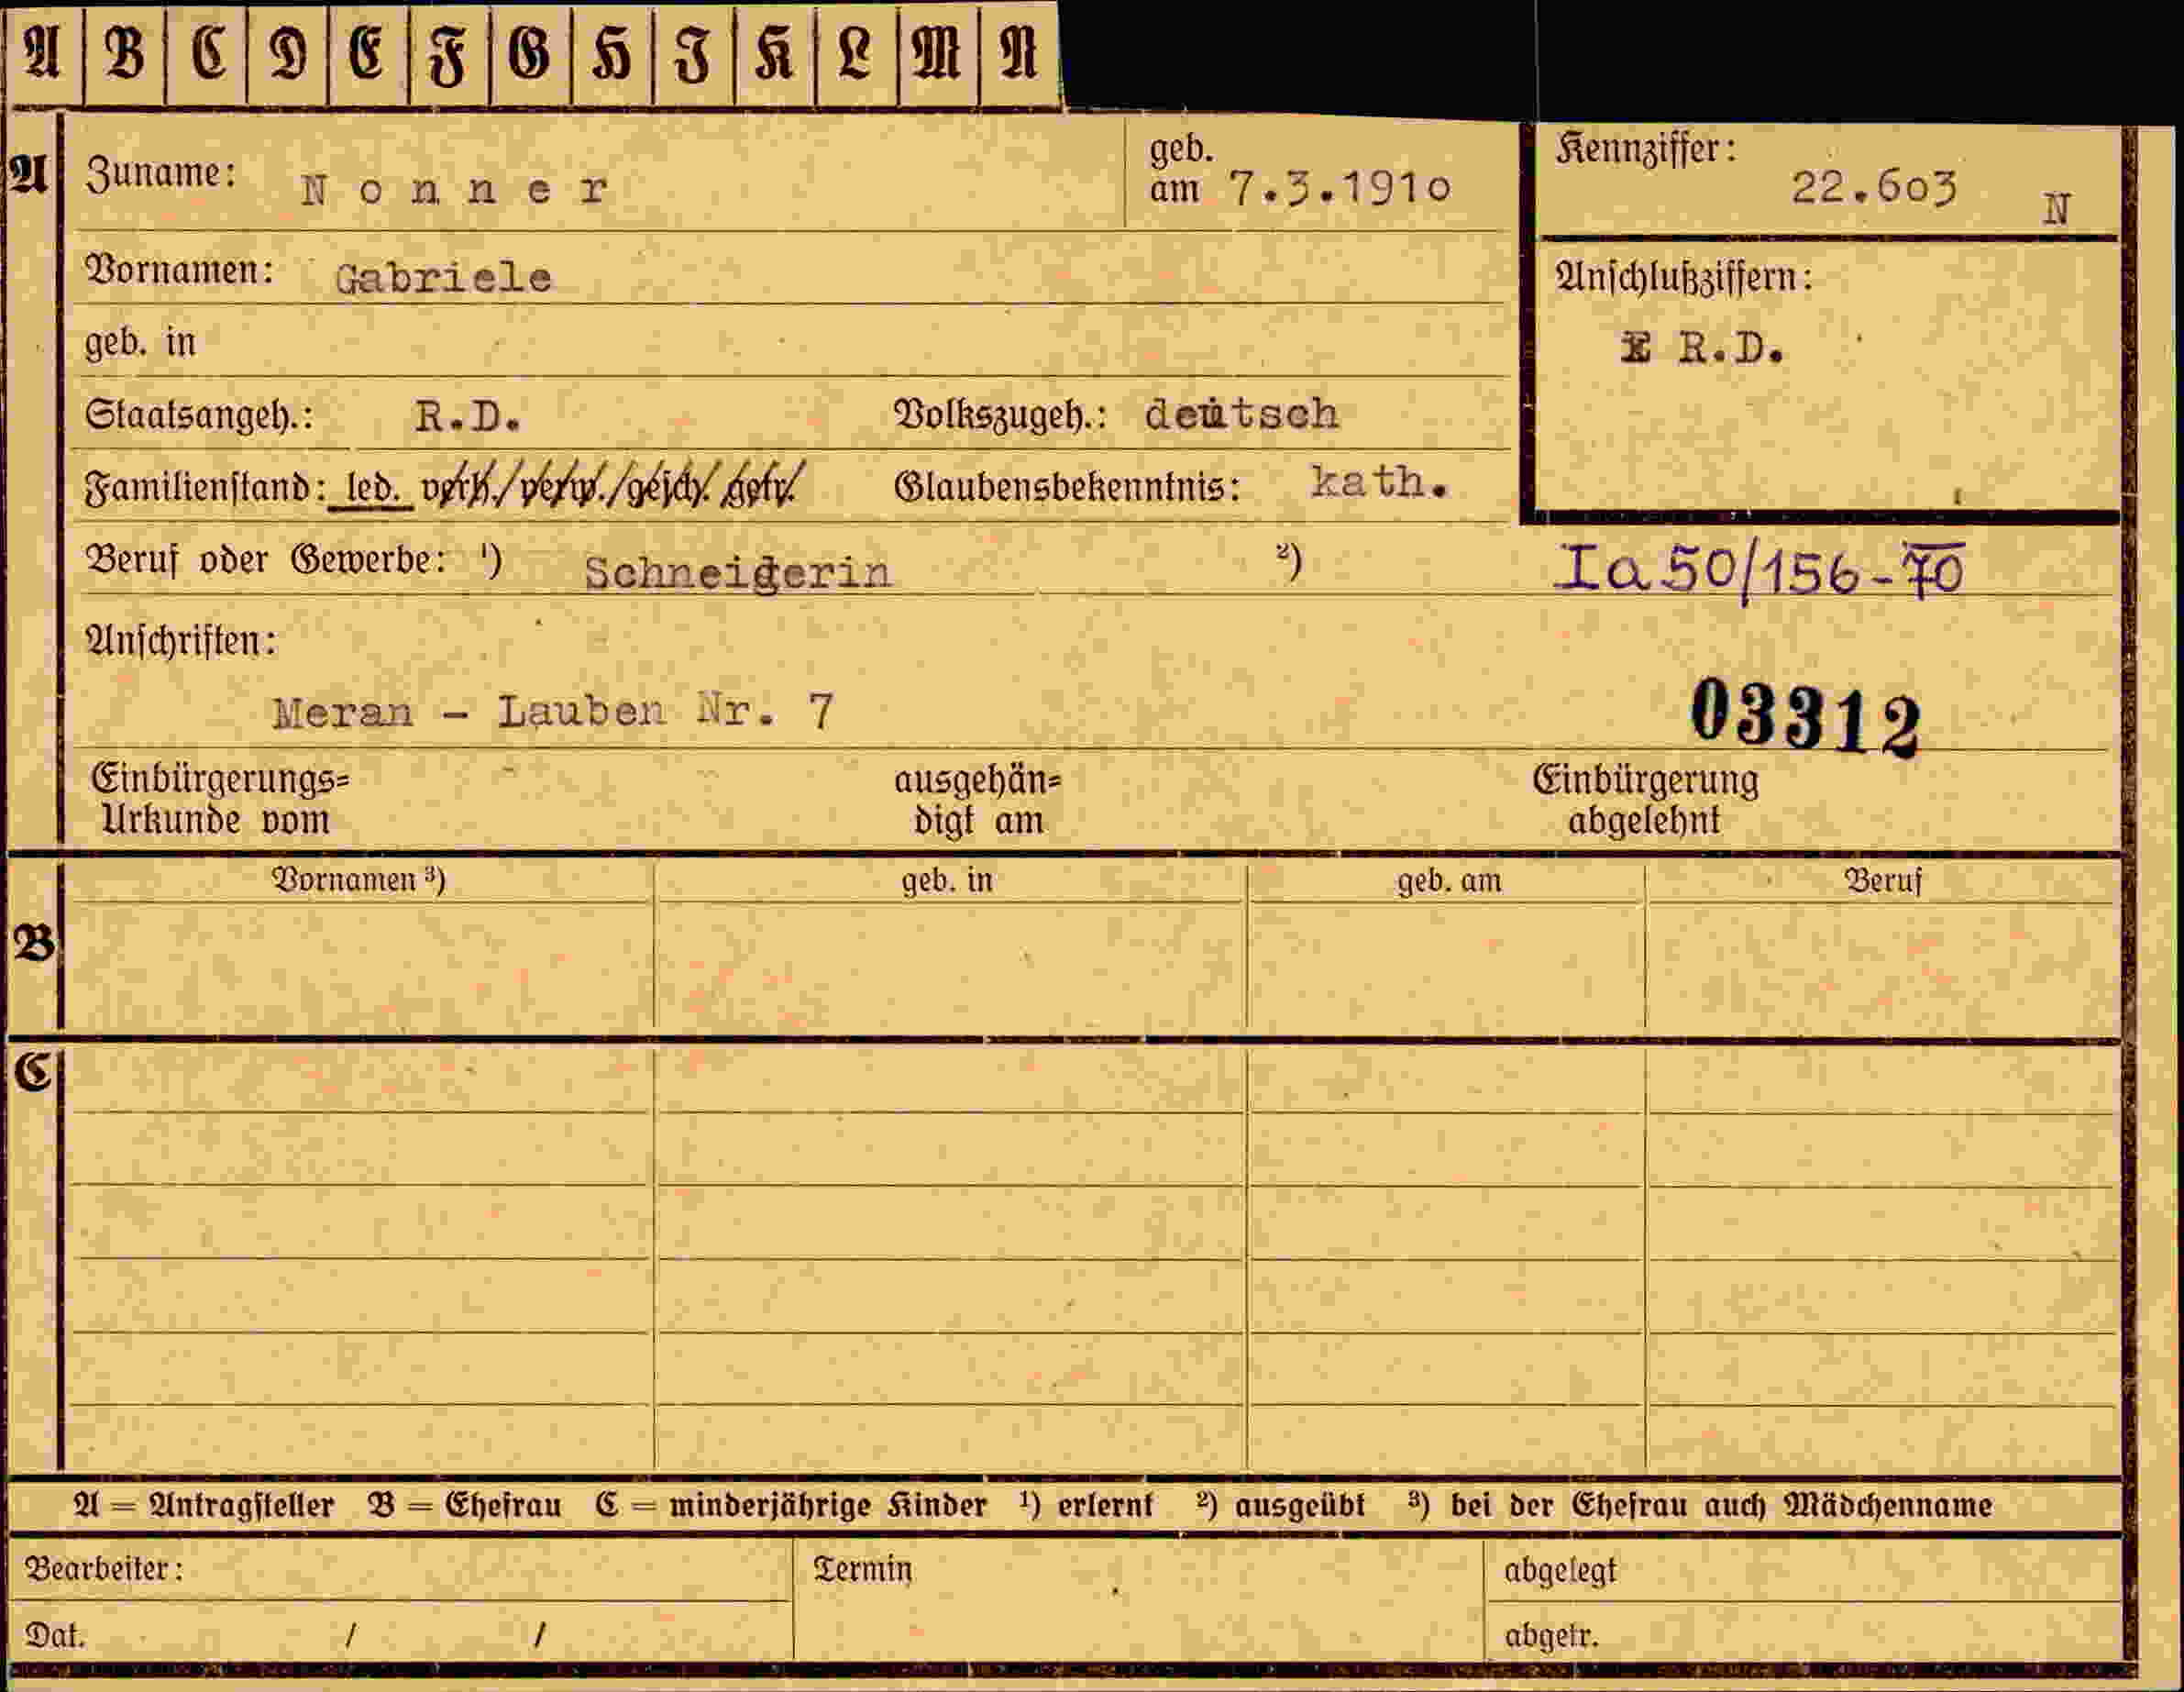 A B C D E F G H I K L M N
A Zuname: Nonner geb. am 7.3.1910 Kennziffer: 22.603 N
Vornamen: Gabriele Anschlußziffern:
geb. in R.D.
Staatsangeh.: R.D. Volkszugeh.: deutsch
Familienstand: led. verh./verw./gesch. getr. Glaubensbekenntnis: kath.
Beruf oder Gewerbe: ¹) Schneiderin ²) Ia 50/156-70
Anschriften:
Meran - Lauben Nr. 7 03312
Einbürgerungs= ausgehän= Einbürgerung
Urkunde vom digt am abgelehnt
Vornamen ³) geb. in geb. am Beruf
B
C
A = Antragsteller B = Ehefrau C = minderjährige Kinder ¹) erlernt ²) ausgeübt ³) bei der Ehefrau auch Mädchenname
Bearbeiter: Termin abgelegt
Dat. / / abgetr.